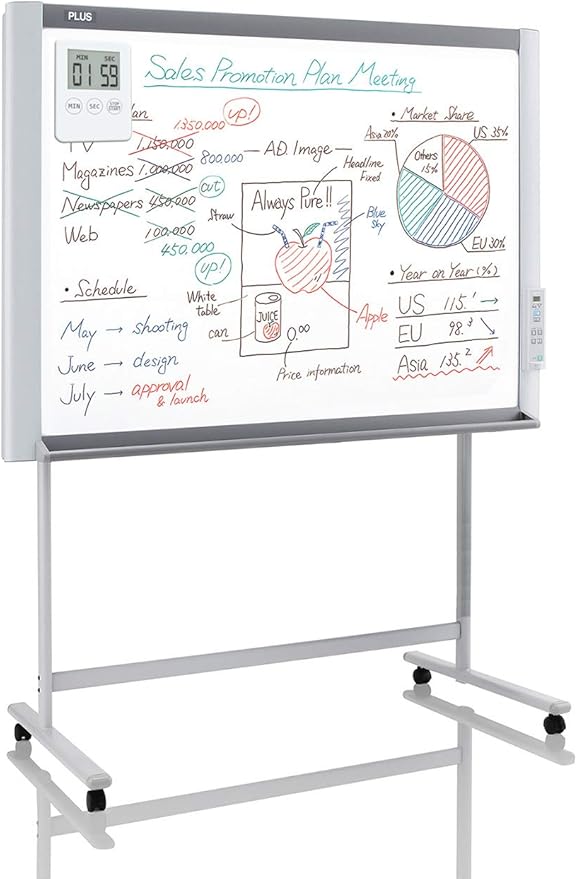 PLUS
MIN SEC
01 59
MIN SEC STOP START
Sales Promotion Plan Meeting
lan
1350,000 up!
TV 1,150,000
Magazines 1,000,000 800,000
Newspapers 450,000 cut
Web 100,000
450,000
up!
• Schedule
May → shooting
June → design
July → approval
& launch
— A.D. Image —
Headline
Fixed
Always Pure!!
Straw
Blue
Sky
White
table
can
JUICE
Apple
0.00
Price information
• Market Share
Asia 20%
US 35%
Others
15%
EU 30%
• Year on Year (%)
US 115.1 →
EU 98.3 ↘
Asia 135.2 ↗